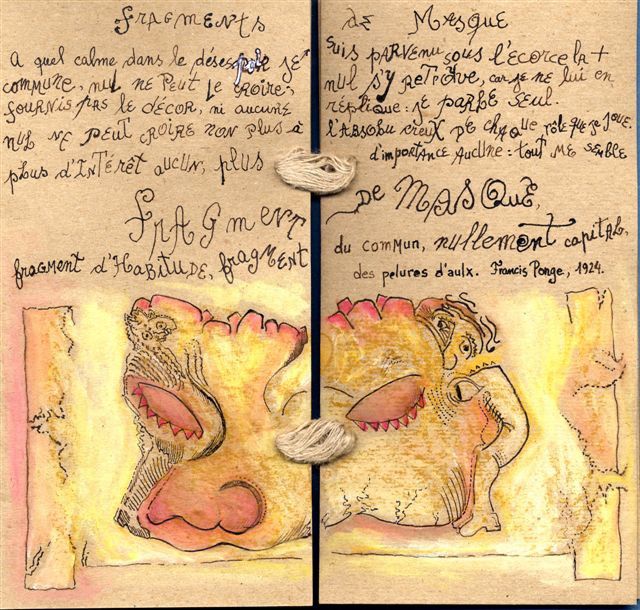 FRAGMENTS de MASQUE
A quel calme dans le désespoir je suis PARVENU sous l'écorce la +
commune, nul ne peut le croire; nul s'y retrouve, car je ne lui en
fournis pas le décor, ni aucune réplique: je parle seul.
nul ne peut croire non plus à l'ABSOLU creux de chaque rôle que je joue.
plus d'intérêt aucun, plus d'importance aucune: tout me semble
FRAGMENT De MASQUE,
fragment d'Habitude, fragment du commun, nullement capital,
des pelures d'aulx. Francis Ponge, 1924.